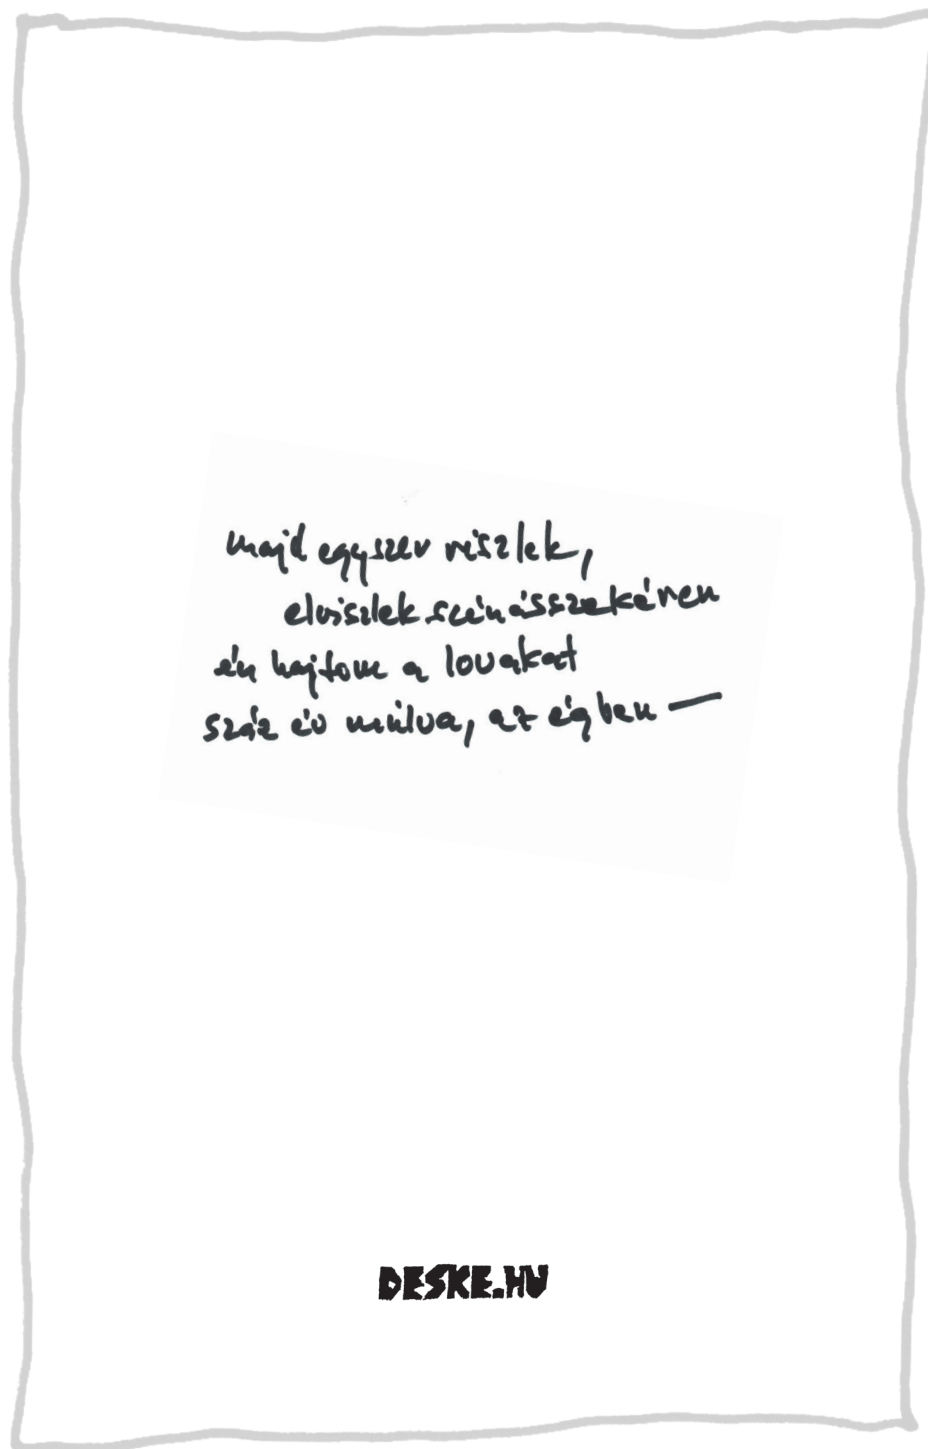 majd egyszer viszlek,
elviszlek szénásszekéren
én hajtom a lovakat
száz év múlva, az égben —
DESKE.HU